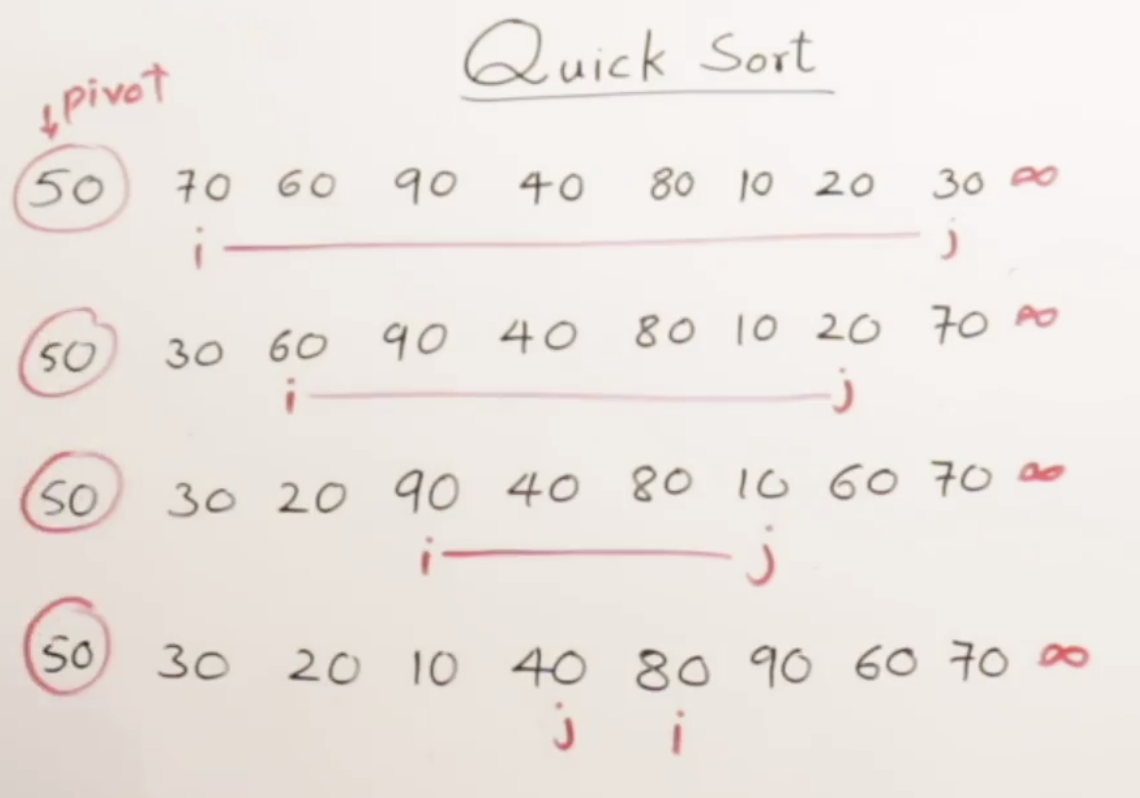 Quick Sort
pivot
50 70 60 90 40 80 10 20 30 ∞
i j
50 30 60 90 40 80 10 20 70 ∞
i j
50 30 20 90 40 80 10 60 70 ∞
i j
50 30 20 10 40 80 90 60 70 ∞
j i